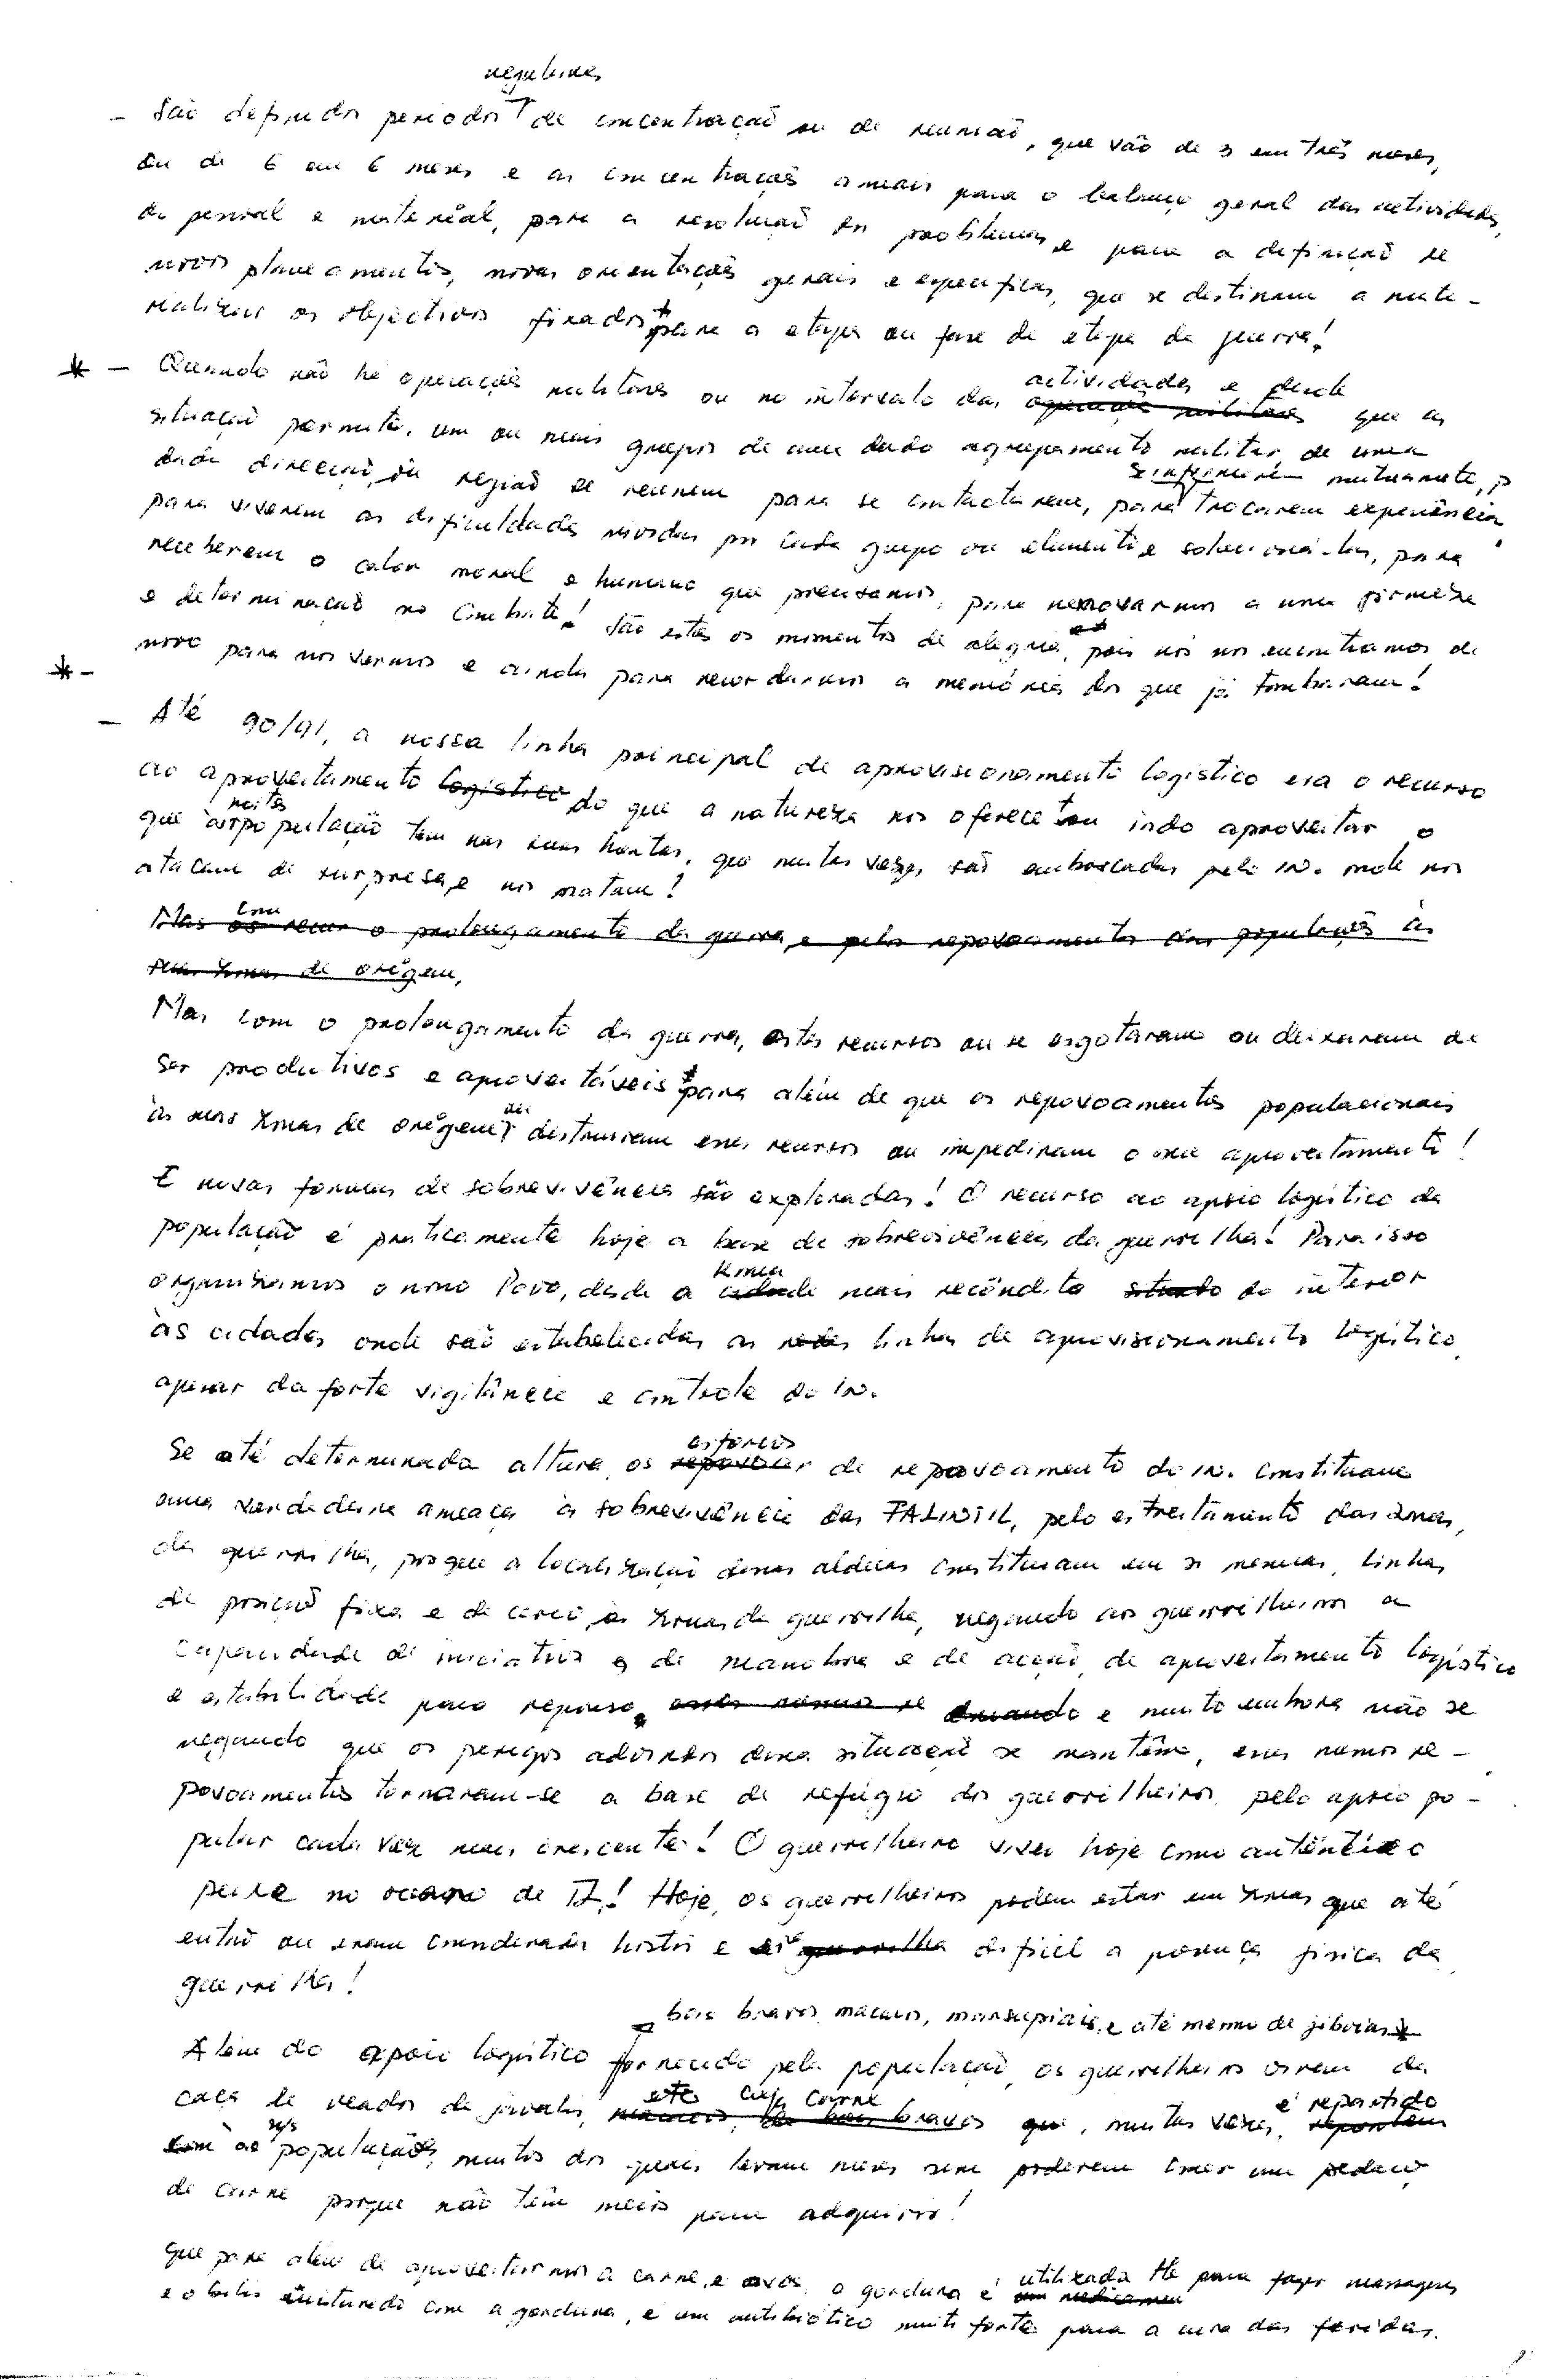 regulares
- São definidos periodos de concentração ou de reunião, que vão de 3 em três meses,
ou de 6 em 6 meses e as concentrações anuais para o balanço geral das actividades,
do pessoal e material, para a resolução dos problemas e para a definição de
novos planeamentos, novas orientações gerais e especificas, que se destinam a mate-
rializar os objectivos fixados para a etapa ou fase da etapa da guerra!
* - Quando não há operações militares ou no intervalo das actividades e desde que a
situação permita, um ou mais grupos de um dado agrupamento militar de uma
dada direcção ou região se reunem para se contactarem, para se informarem mutuamente, p
trocarem experiência,
para viverem as dificuldades vividas por cada grupo ou elemento e solucioná-las, para
receberem o calor moral e humano que precisamos, para renovarmos a uma firmeza
e determinação no combate! São estes os momentos de alegria, pois nós nos encontramos de
novo para nos vermos e ainda para recordarmos a memória dos que já tombaram!
* -
- Até 90/91, a nossa linha principal de aprovisionamento logistico era o recurso
ao aproveitamento logistico do que a natureza nos oferece ou indo aproveitar o
que a população tem nas suas hortas, que muitas vezes são emboscadas pelo in. onde nos
atacam de surpresa e nos matam!
Mas com o prolongamento da guerra, e pelos repovoamentos das populações às
suas zonas de origem,
Mas com o prolongamento da guerra, estes recursos ou se esgotaram ou deixaram de
ser produtivos e aproveitáveis para além de que os repovoamentos populacionais
às suas zonas de origem destruiram esses recursos ou impediram o seu aproveitamento!
E novas formas de sobrevivência são exploradas! O recurso ao apoio logístico da
população é praticamente hoje a base da sobrevivência da guerrilha! Para isso
organizamos o nosso Povo, desde a zona mais recôndita do interior
às cidades onde são estabelecidas as redes linhas de aprovisionamento logístico,
apesar da forte vigilância e controle do in.
Se até determinada altura, os esforços de repovoamento do in. constituiam
uma verdadeira ameaça à sobrevivência das FALINTIL, pelo estreitamento das áreas
da guerrilha, porque a localização dessas aldeias constituiam em si mesmas, linhas
de posição fixa e de cerco às zonas da guerrilha, negando aos guerrilheiros a
capacidade de iniciativa e de manobra e de acção, de aproveitamento logístico
e estabilidade para repouso, e muito embora não se
negando que os perigos advindos dessa situação se mantêm, esses mesmos re-
povoamentos tornaram-se a base de refúgio dos guerrilheiros, pelo apoio po-
pular cada vez mais crescente! O guerrilheiro vive hoje como autêntico
peixe no oceano de TL! Hoje, os guerrilheiros podem estar em zonas que até
então ou eram consideradas hostis e difícil a presença física da
guerrilha!
bois bravos, macacos, marsupiais, e até mesmo de jiboias
Além do apoio logístico fornecido pela população, os guerrilheiros vivem da
caça de veados, de javalis, cuja carne, muitas vezes, é repartido
às populações, muitos dos quais levam meses sem poderem comer um pedaço
de carne porque não têm meios para adquirir!
Que para além de aproveitarmos a carne e ovos, a gordura é utilizada para fazer massagens
e o bilis misturado com a gordura, é um antibiótico muito forte para a cura das feridas.